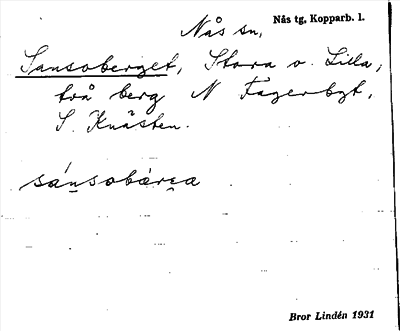 Nås sn,
Nås tg, Kopparb. l.
Sansoberget, Stora o. Lilla,
två berg N Fagerbgt,
S. Knästen.
sánsobárᶒa
Bror Lindén 1931